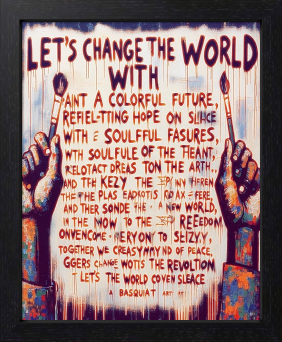 LET'S CHANGE THE WORLD
WITH
AINT A COLORFUL FUTURE,
REFIEL-TTING HOPE ON SLICE
WITH E SOULFFUL FASURES,
WTH SOULFULE OF THE
RELOTACT DREAS TON THE ARTH..
AND THE KEZY THE HEREN
THE THE PLAS
AND THER SONDE THE A NEW WORLD,
IN THE MOW TO THE REEDOM
ONVENCOME MERYON TO SEIZY,
TOGETHER WE CREASYMYND OF PEACE,
GGERS CHANGE WOTTS THE REVOLTION
T LET'S THE WORLD COVEN SLEACE
A BASQUIAT ART